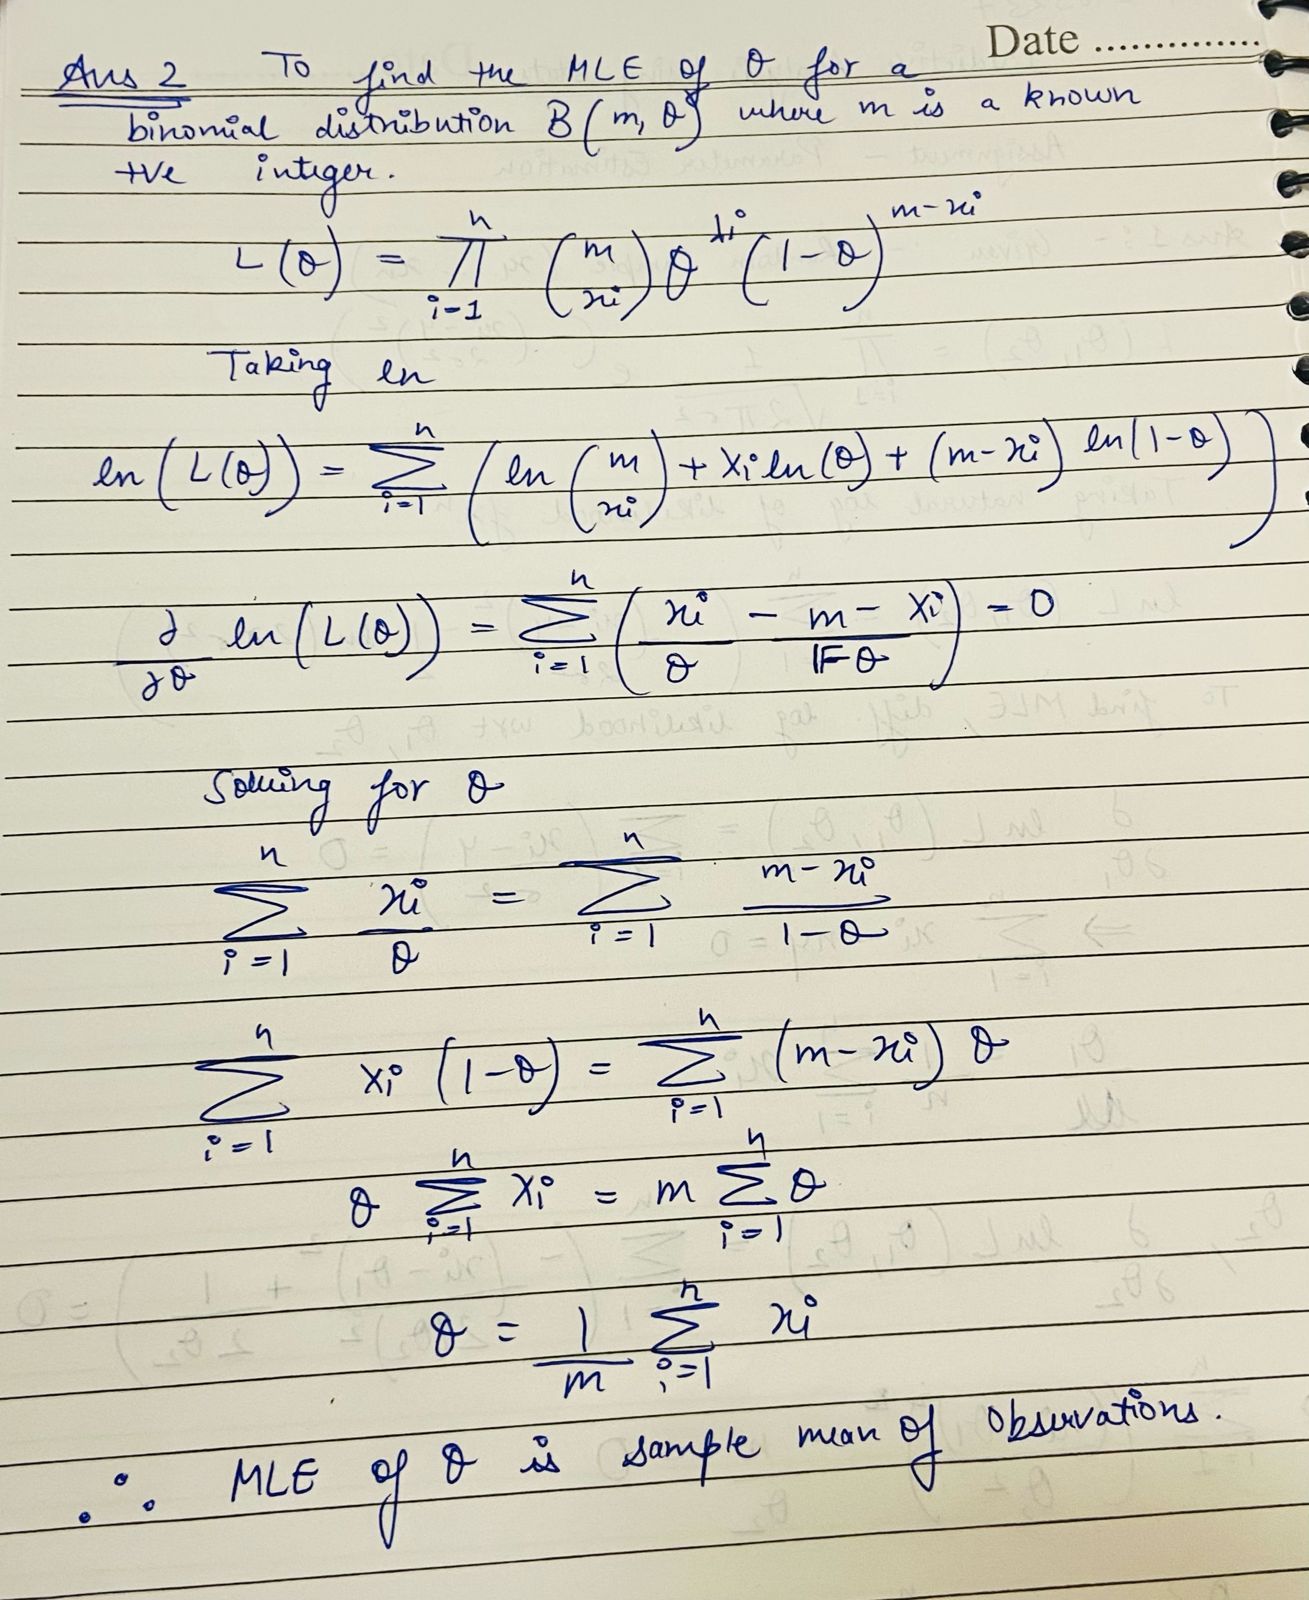 Date ..............
Ans 2 To find the MLE of θ for a
binomial distribution B(m, θ) where m is a known
+ve integer.
L(θ) = ∏_{i-1}^{n} (m xi) θ^{xi} (1-θ)^{m-xi}
Taking ln
ln (L(θ)) = Σ_{i=1}^{n} (ln (m xi) + xi ln(θ) + (m-xi) ln(1-θ))
∂/∂θ ln (L(θ)) = Σ_{i=1}^{n} (xi/θ - m-xi/1-θ) = 0
Solving for θ
Σ_{i=1}^{n} xi/θ = Σ_{i=1}^{n} m-xi/1-θ
Σ_{i=1}^{n} xi (1-θ) = Σ_{i=1}^{n} (m-xi) θ
θ Σ_{i=1}^{n} xi = m Σ_{i=1}^{n} θ
θ = 1/m Σ_{i=1}^{n} xi
∴ MLE of θ is sample mean of observations.